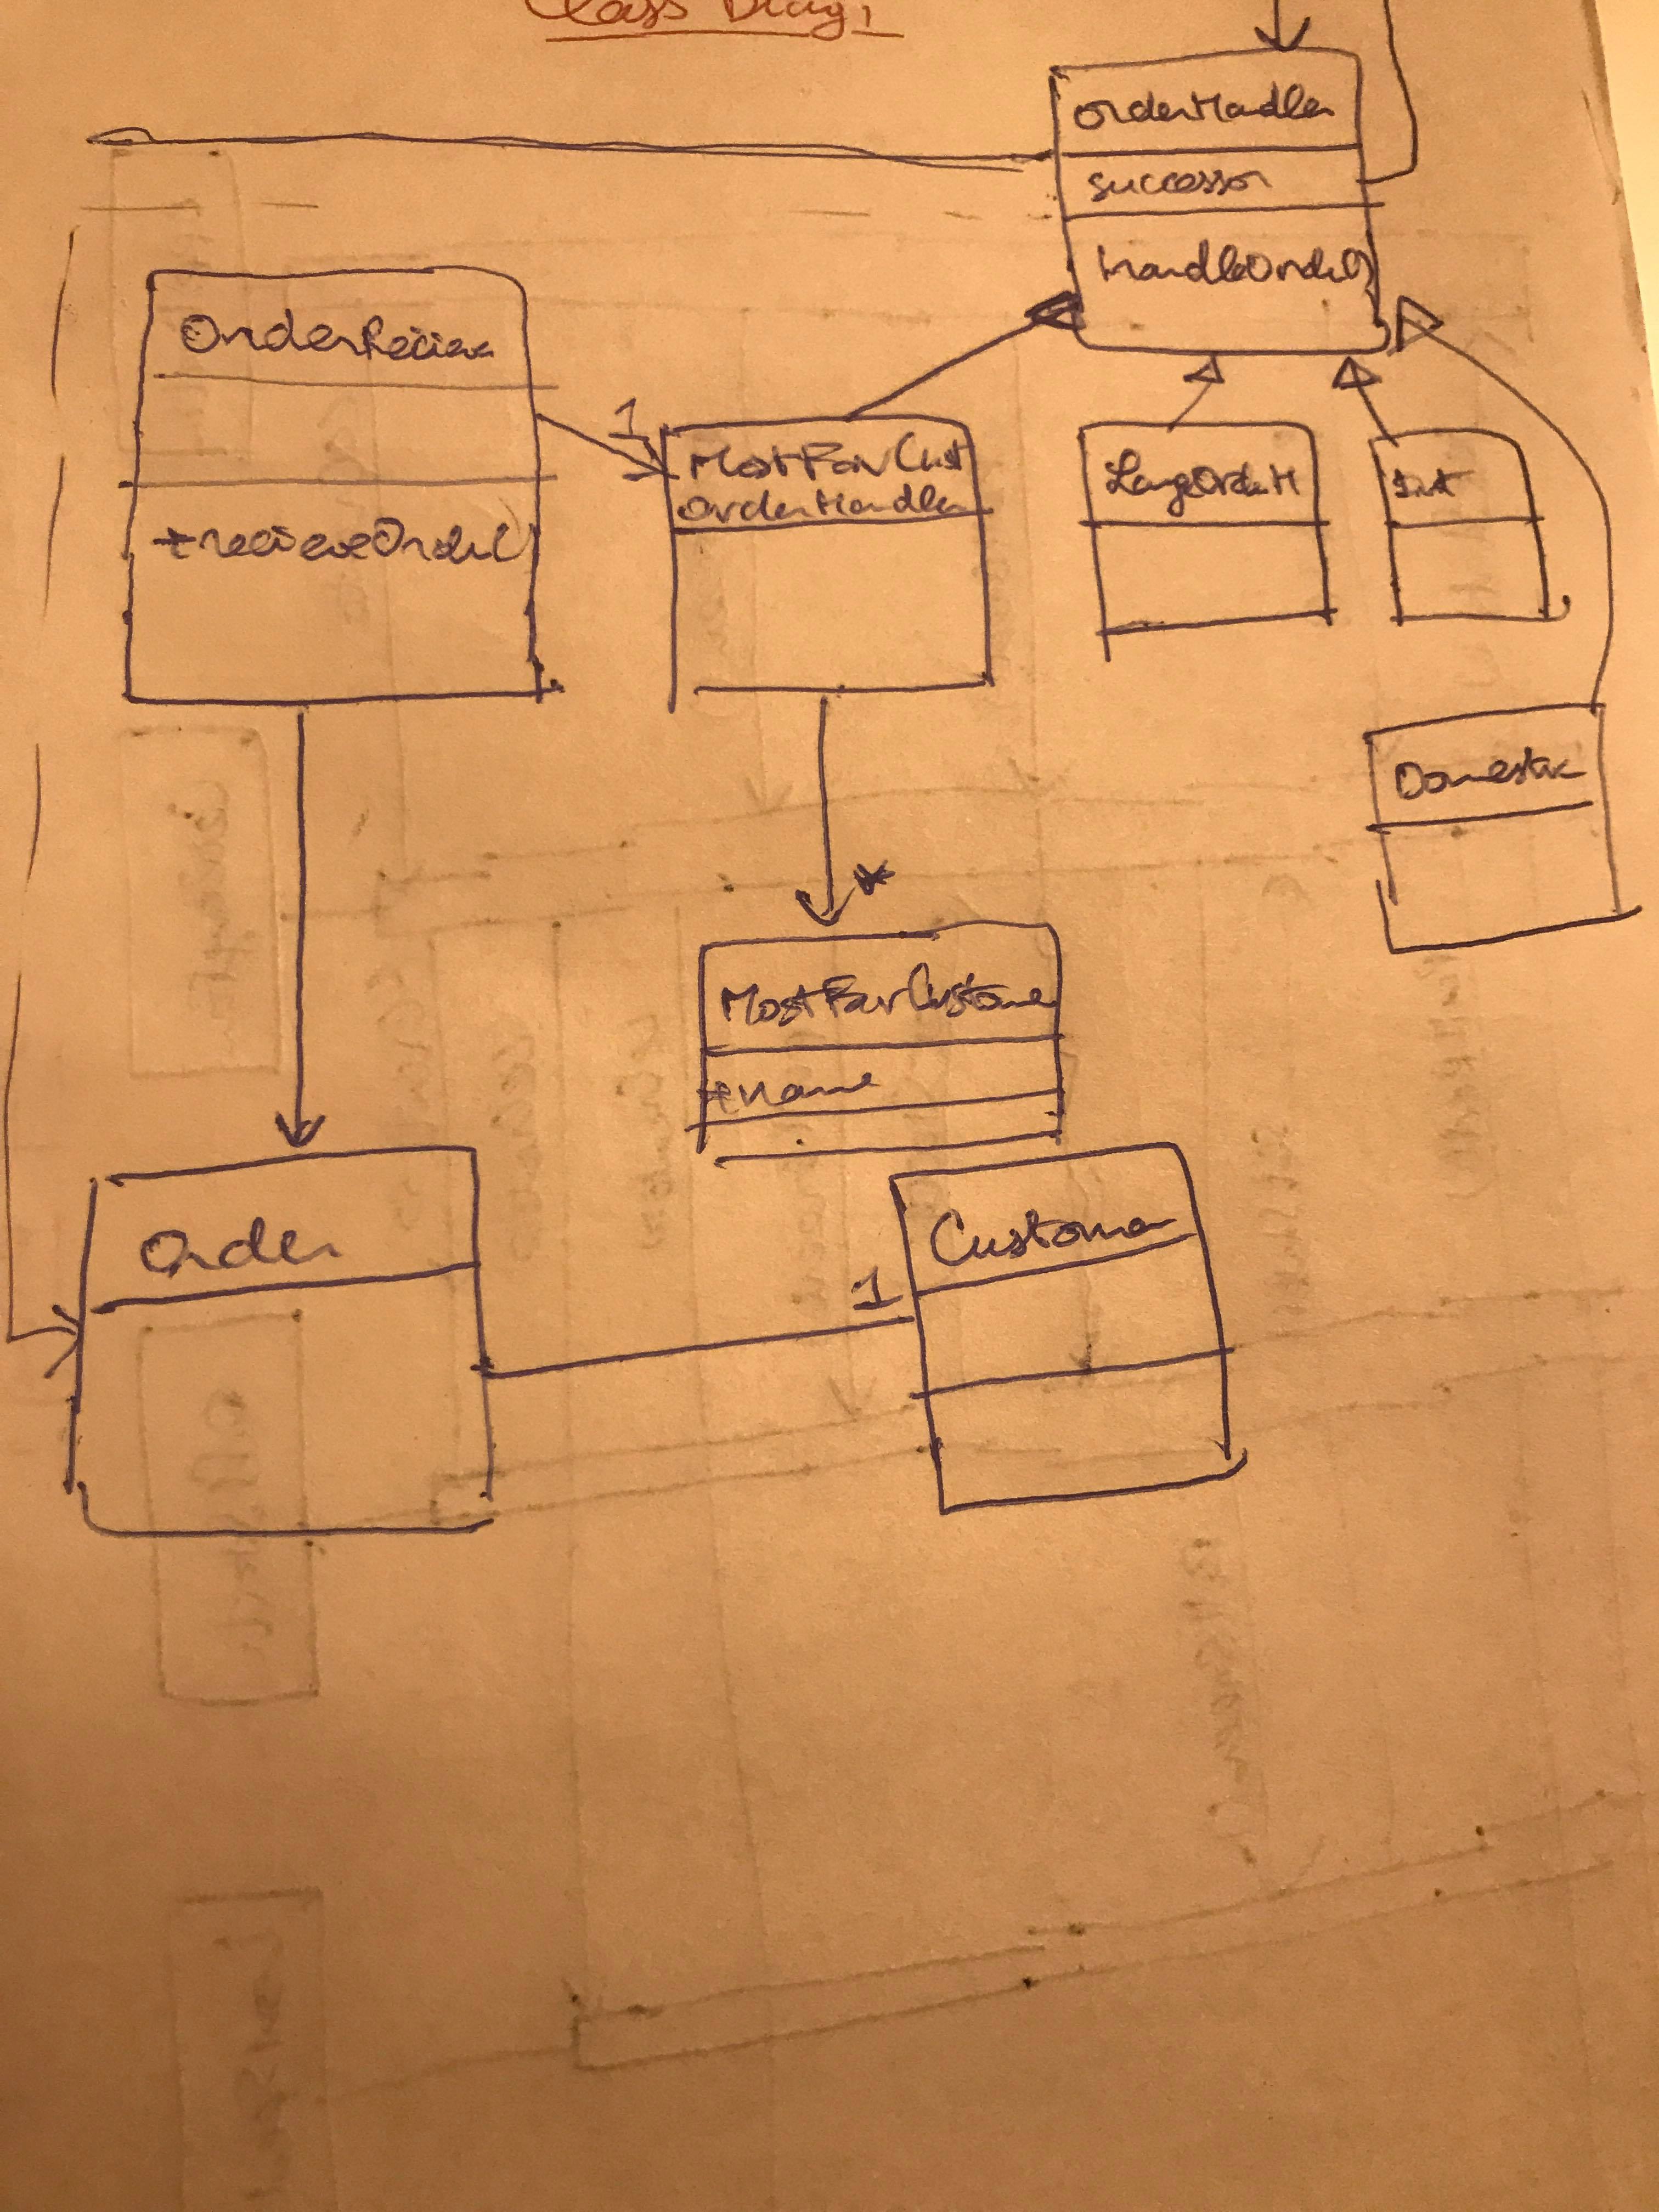 Class Diag1
OrderHandler
successor
handleOrder()
OrderReciever
+recieveOrder()
1
MostFavCust
OrderHandler
LargeOrderH
Int
Domestic
*
MostFavCustomer
+name
Order
1
Customer